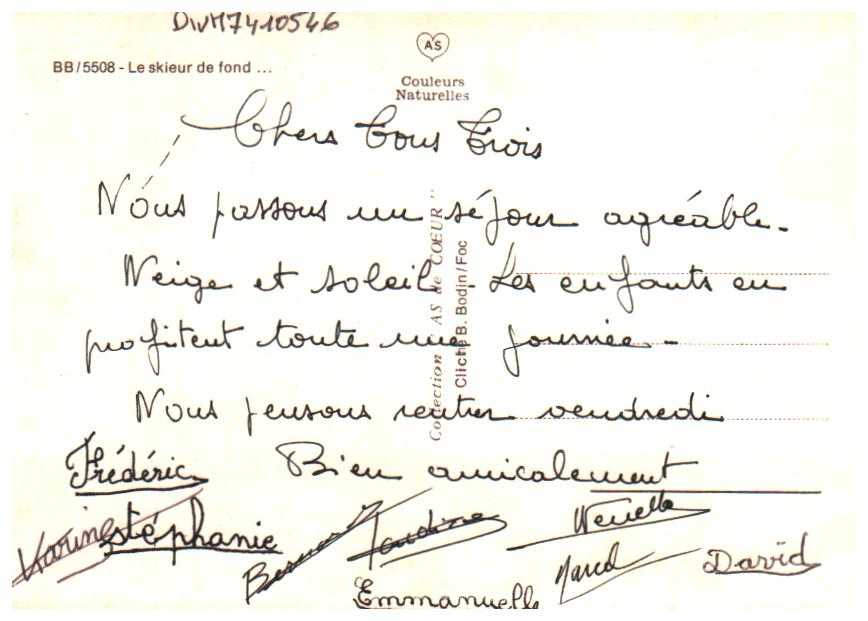 DivM7410546
AS
BB/5508 - Le skieur de fond ...
Couleurs
Naturelles
Chers Tous Trois
Nous passons un séjour agréable.
Neige et soleil - Les enfants en
profitent toute une journée -
Nous pensons rentrer vendredi
Bien amicalement
Frédéric
Karine
Stéphanie
Emmanuelle
Marcel
David
Collection " AS de COEUR "
Cliché B. Bodin/Foc